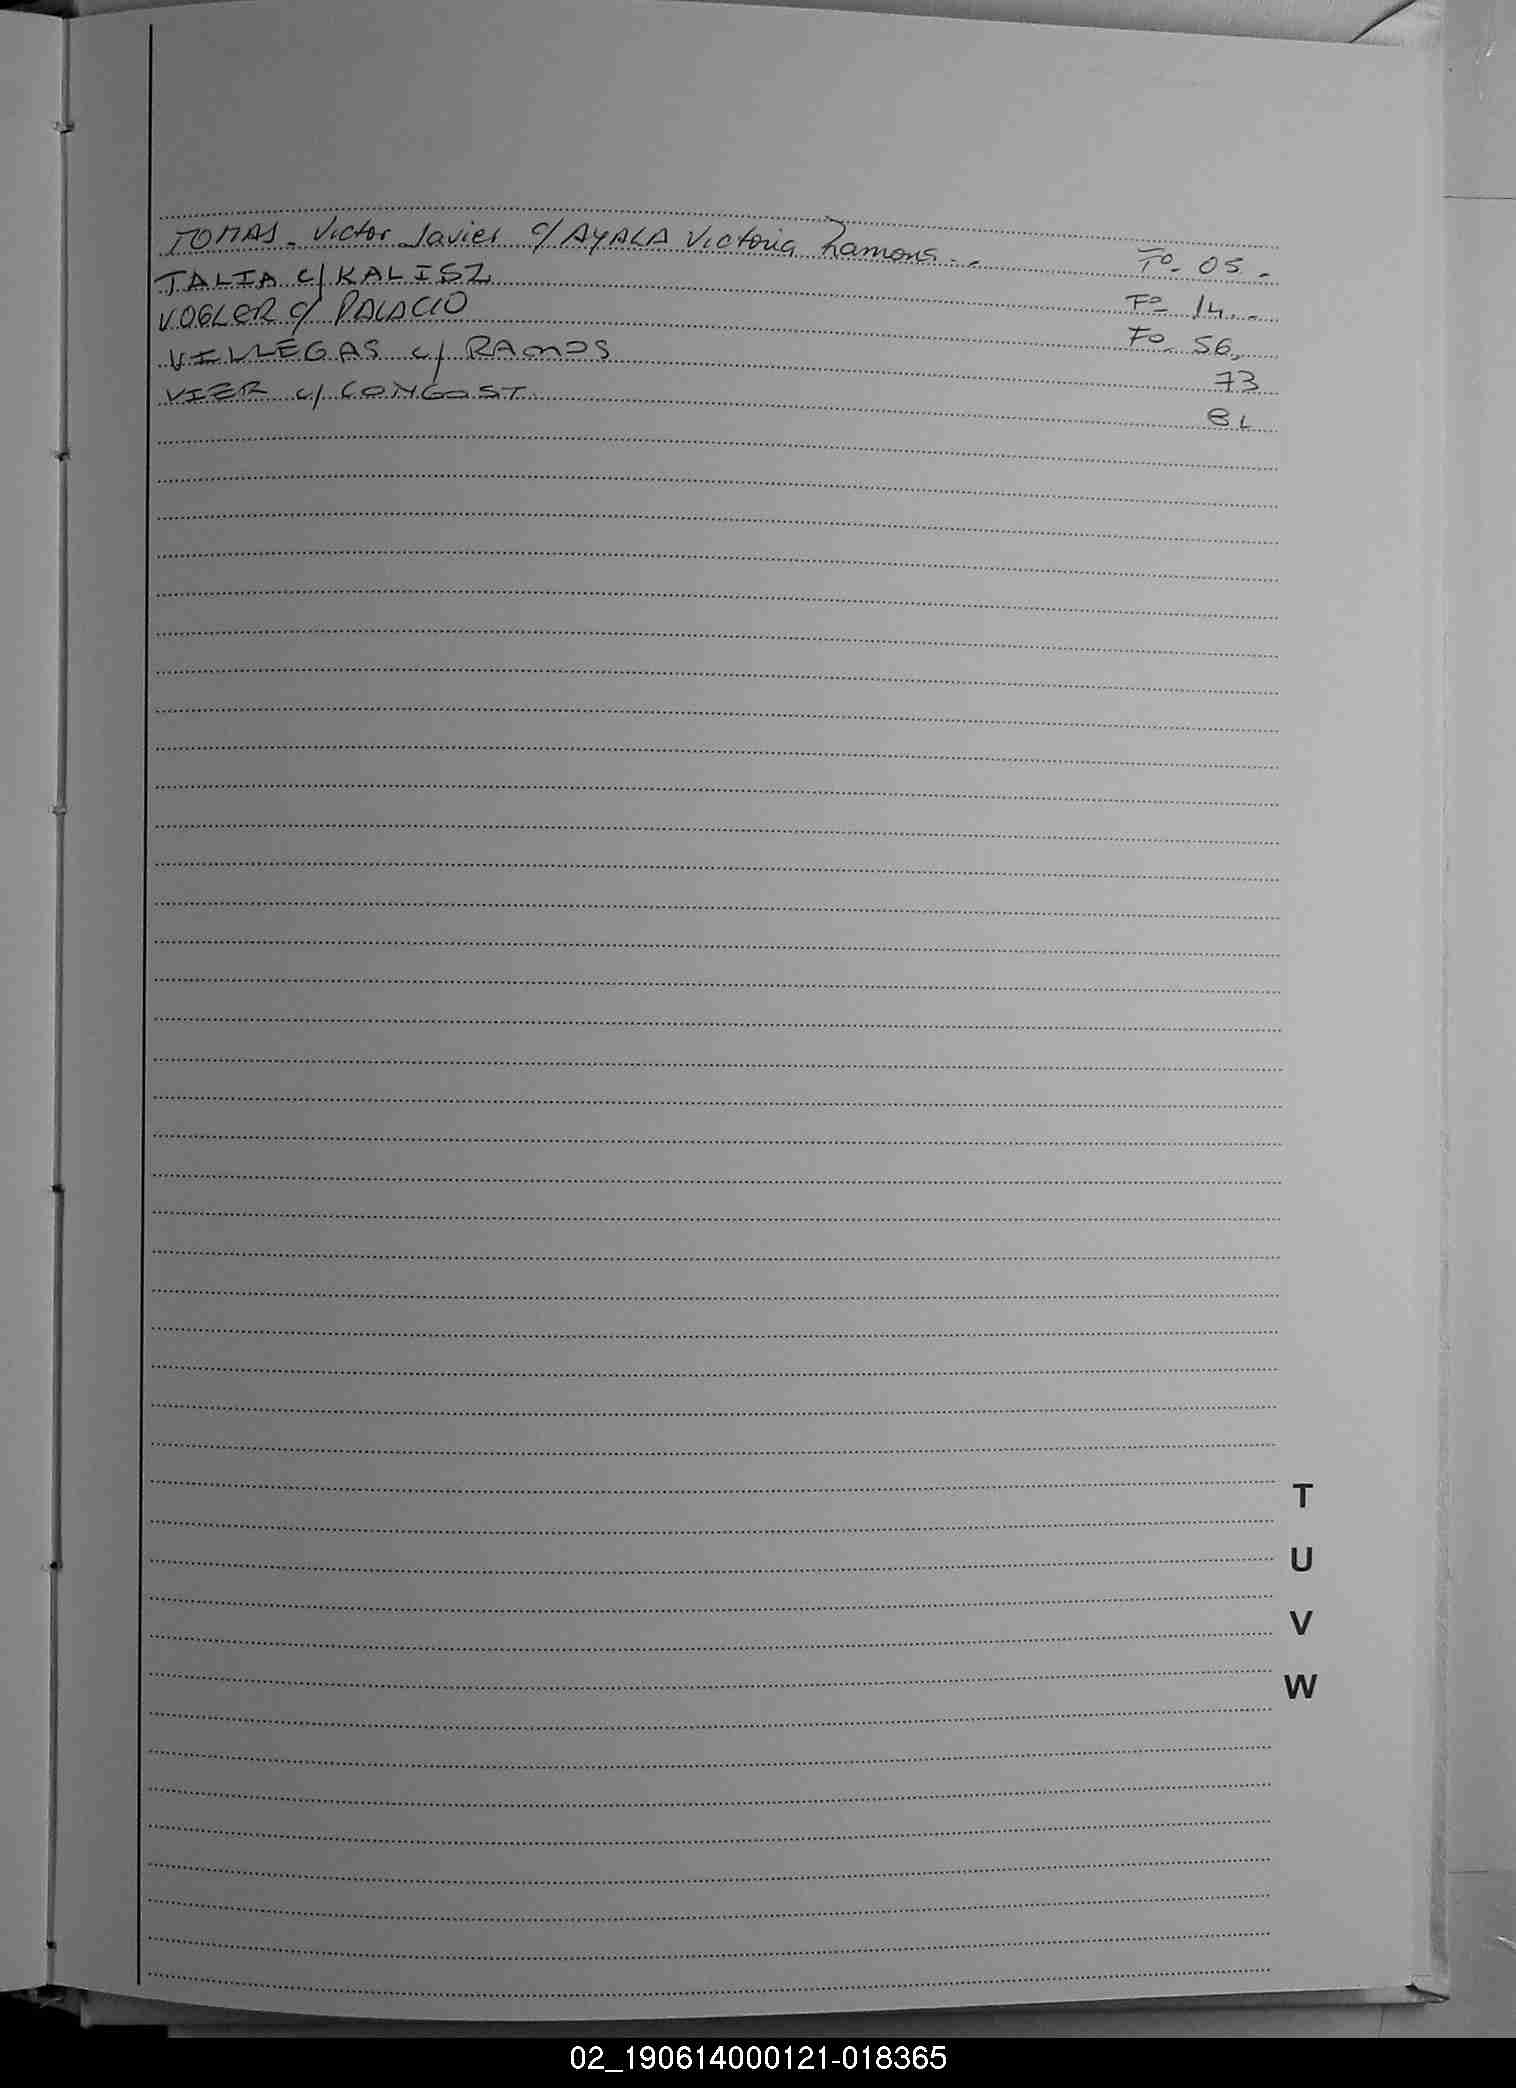 TOMAS. Victor Javier c/ AYALA Victoria Ramona. Fo. 05.
TALIA c/ KALISZ Fo 14.
VOGLER c/ PALACIO Fo. 56.
VILLEGAS c/ RAMOS 73
VIER c/ CONGOST.
T
U
V
W
02_190614000121-018365